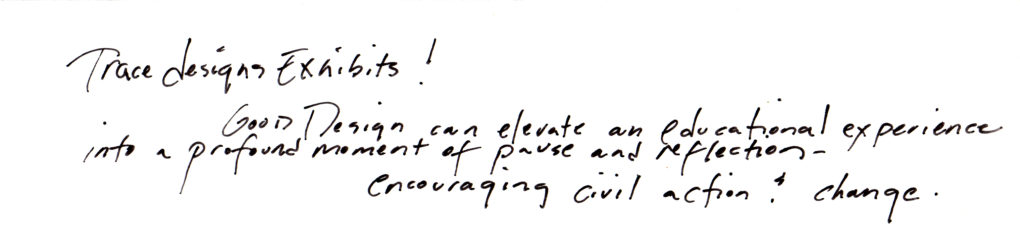 Trace designs Exhibits!
Good Design can elevate an educational experience
into a profound moment of pause and reflection-
encouraging civil action & change.